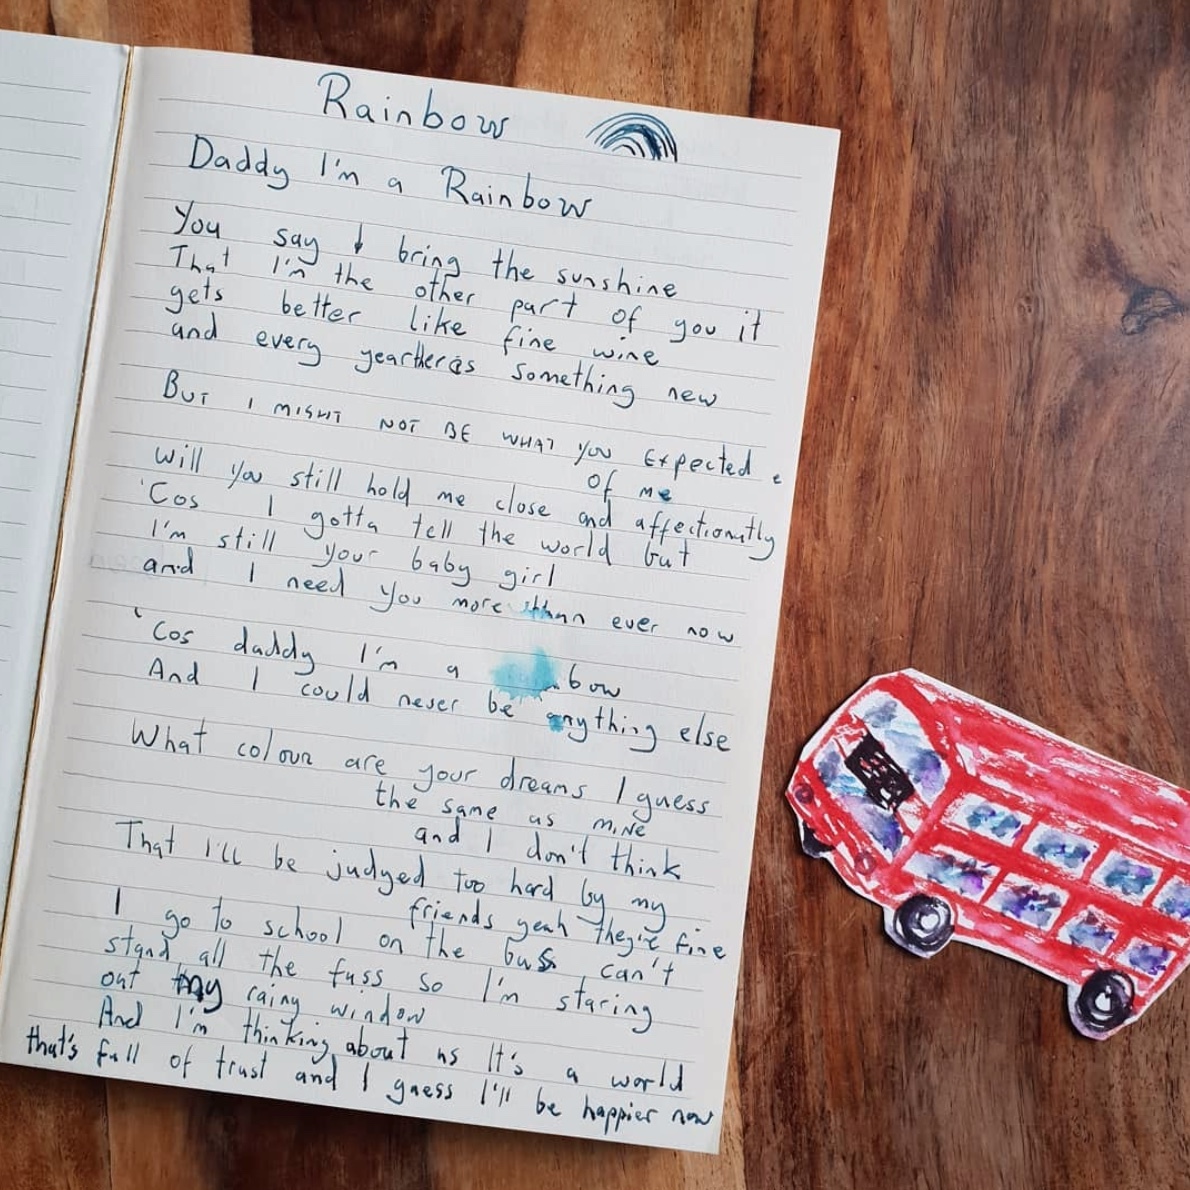 Rainbow
Daddy I'm a Rainbow
You say I bring the sunshine
That I'm the other part of you it
gets better like fine wine
and every year there's something new
BUT I MIGHT NOT BE WHAT YOU Expected
of me
will you still hold me close and affectionatly
'Cos I gotta tell the world but
I'm still your baby girl
and I need you more than ever now
'Cos daddy I'm a bow
And I could never be anything else
What colour are your dreams I guess
the same as MiNe
and I don't think
That I'll be judged too hard by my
friends yeah they're fine
I go to school on the bus, can't
stand all the fuss so I'm staring
out my rainy window
And I'm thinking about us It's a world
that's full of trust and I guess I'll be happier now